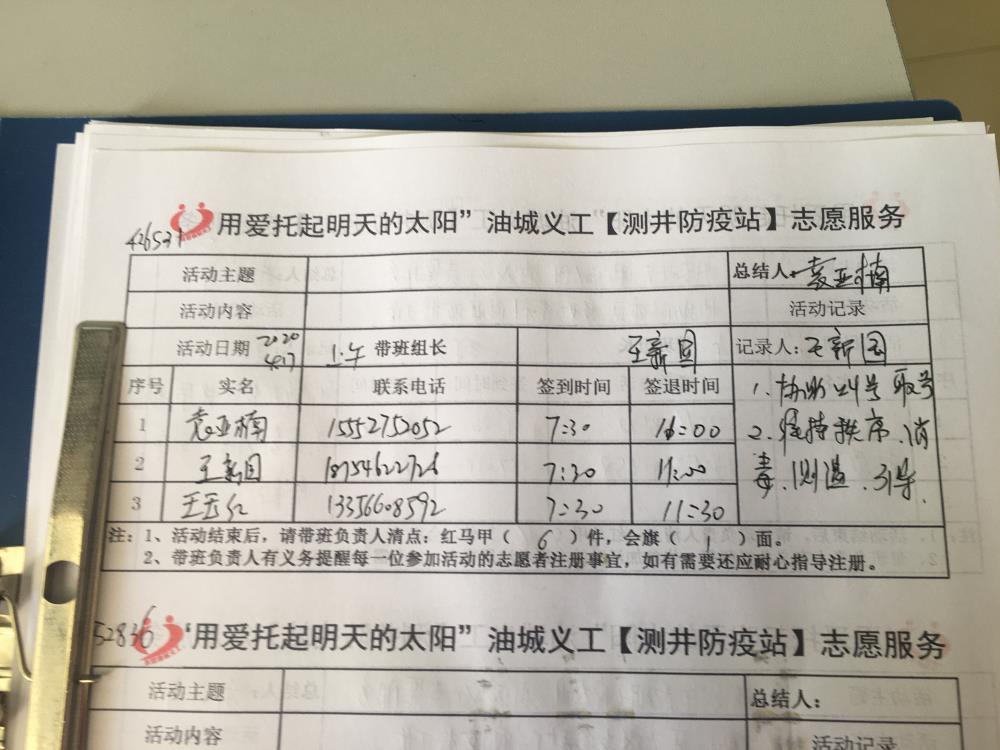 426531
用爱托起明天的太阳”油城义工【测井防疫站】志愿服务
活动主题 总结人:袁亚楠
活动内容 活动记录
活动日期 2020 4.17 上午 带班组长 王新国 记录人:王新国
序号 实名 联系电话 签到时间 签退时间
1 袁亚楠 15552752052 7:30 16:00
2 王新国 18754622726 7:30 11:00
3 王玉红 13356608592 7:30 11:30
1. 协助叫号 取号
2. 维持秩序、消
毒、测温、引导.
注:1、活动结束后,请带班负责人清点:红马甲( 6 )件,会旗( 1 )面。
2、带班负责人有义务提醒每一位参加活动的志愿者注册事宜,如有需要还应耐心指导注册。
52836
“用爱托起明天的太阳”油城义工【测井防疫站】志愿服务
活动主题 总结人:
活动内容 活动记录